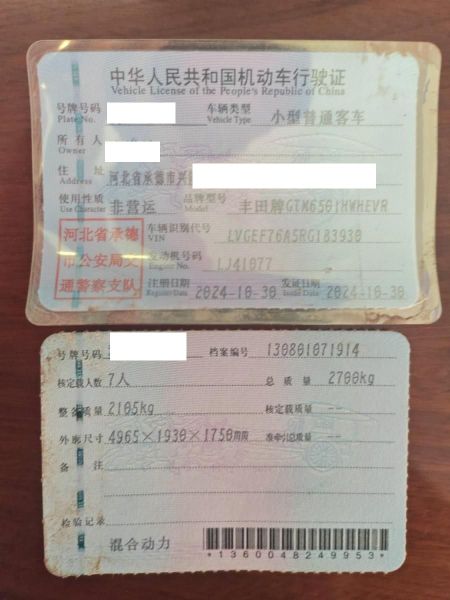 中华人民共和国机动车行驶证
Vehicle License of the People's Republic of China
号牌号码 车辆类型 小型普通客车
Plate No. Vehicle Type
所有人
Owner
住址 河北省承德市兴
Address
使用性质 非营运 品牌型号 丰田牌GTM6501HWHEVR
Use Character Model
河北省承德 车辆识别代号 LVGEF76A5RG183930
VIN
市公安局交 发动机号码 LJ41077
Engine No.
通警察支队 注册日期 2024-10-30 发证日期 2024-10-30
Register Date Issue Date
号牌号码 档案编号 130801071914
核定载人数 7人 总质量 2700kg
整备质量 2105kg 核定载质量 --
外廓尺寸 4965×1930×1750mm 准牵引总质量 --
备注
检验记录
混合动力 *1360048249953*